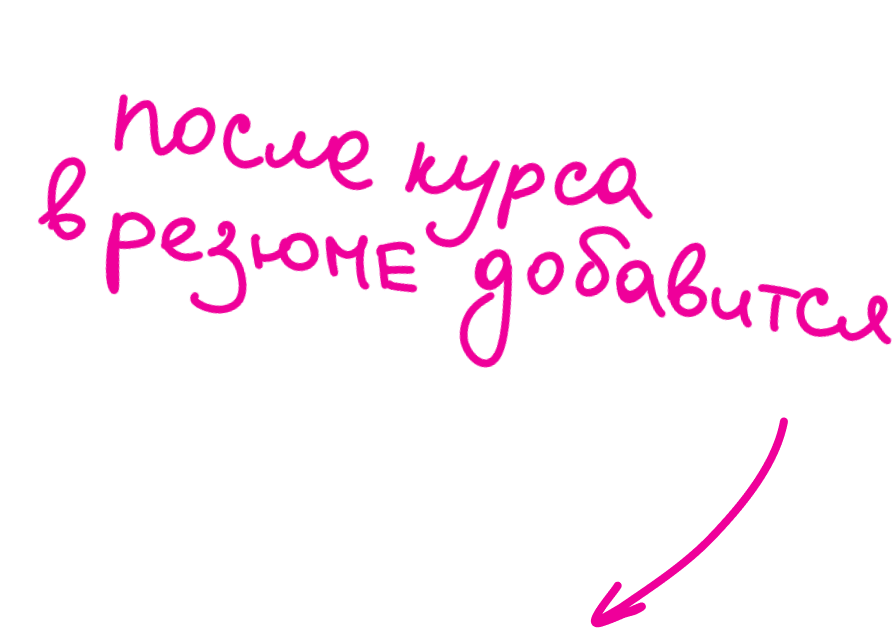 после курса
в резюме добавится